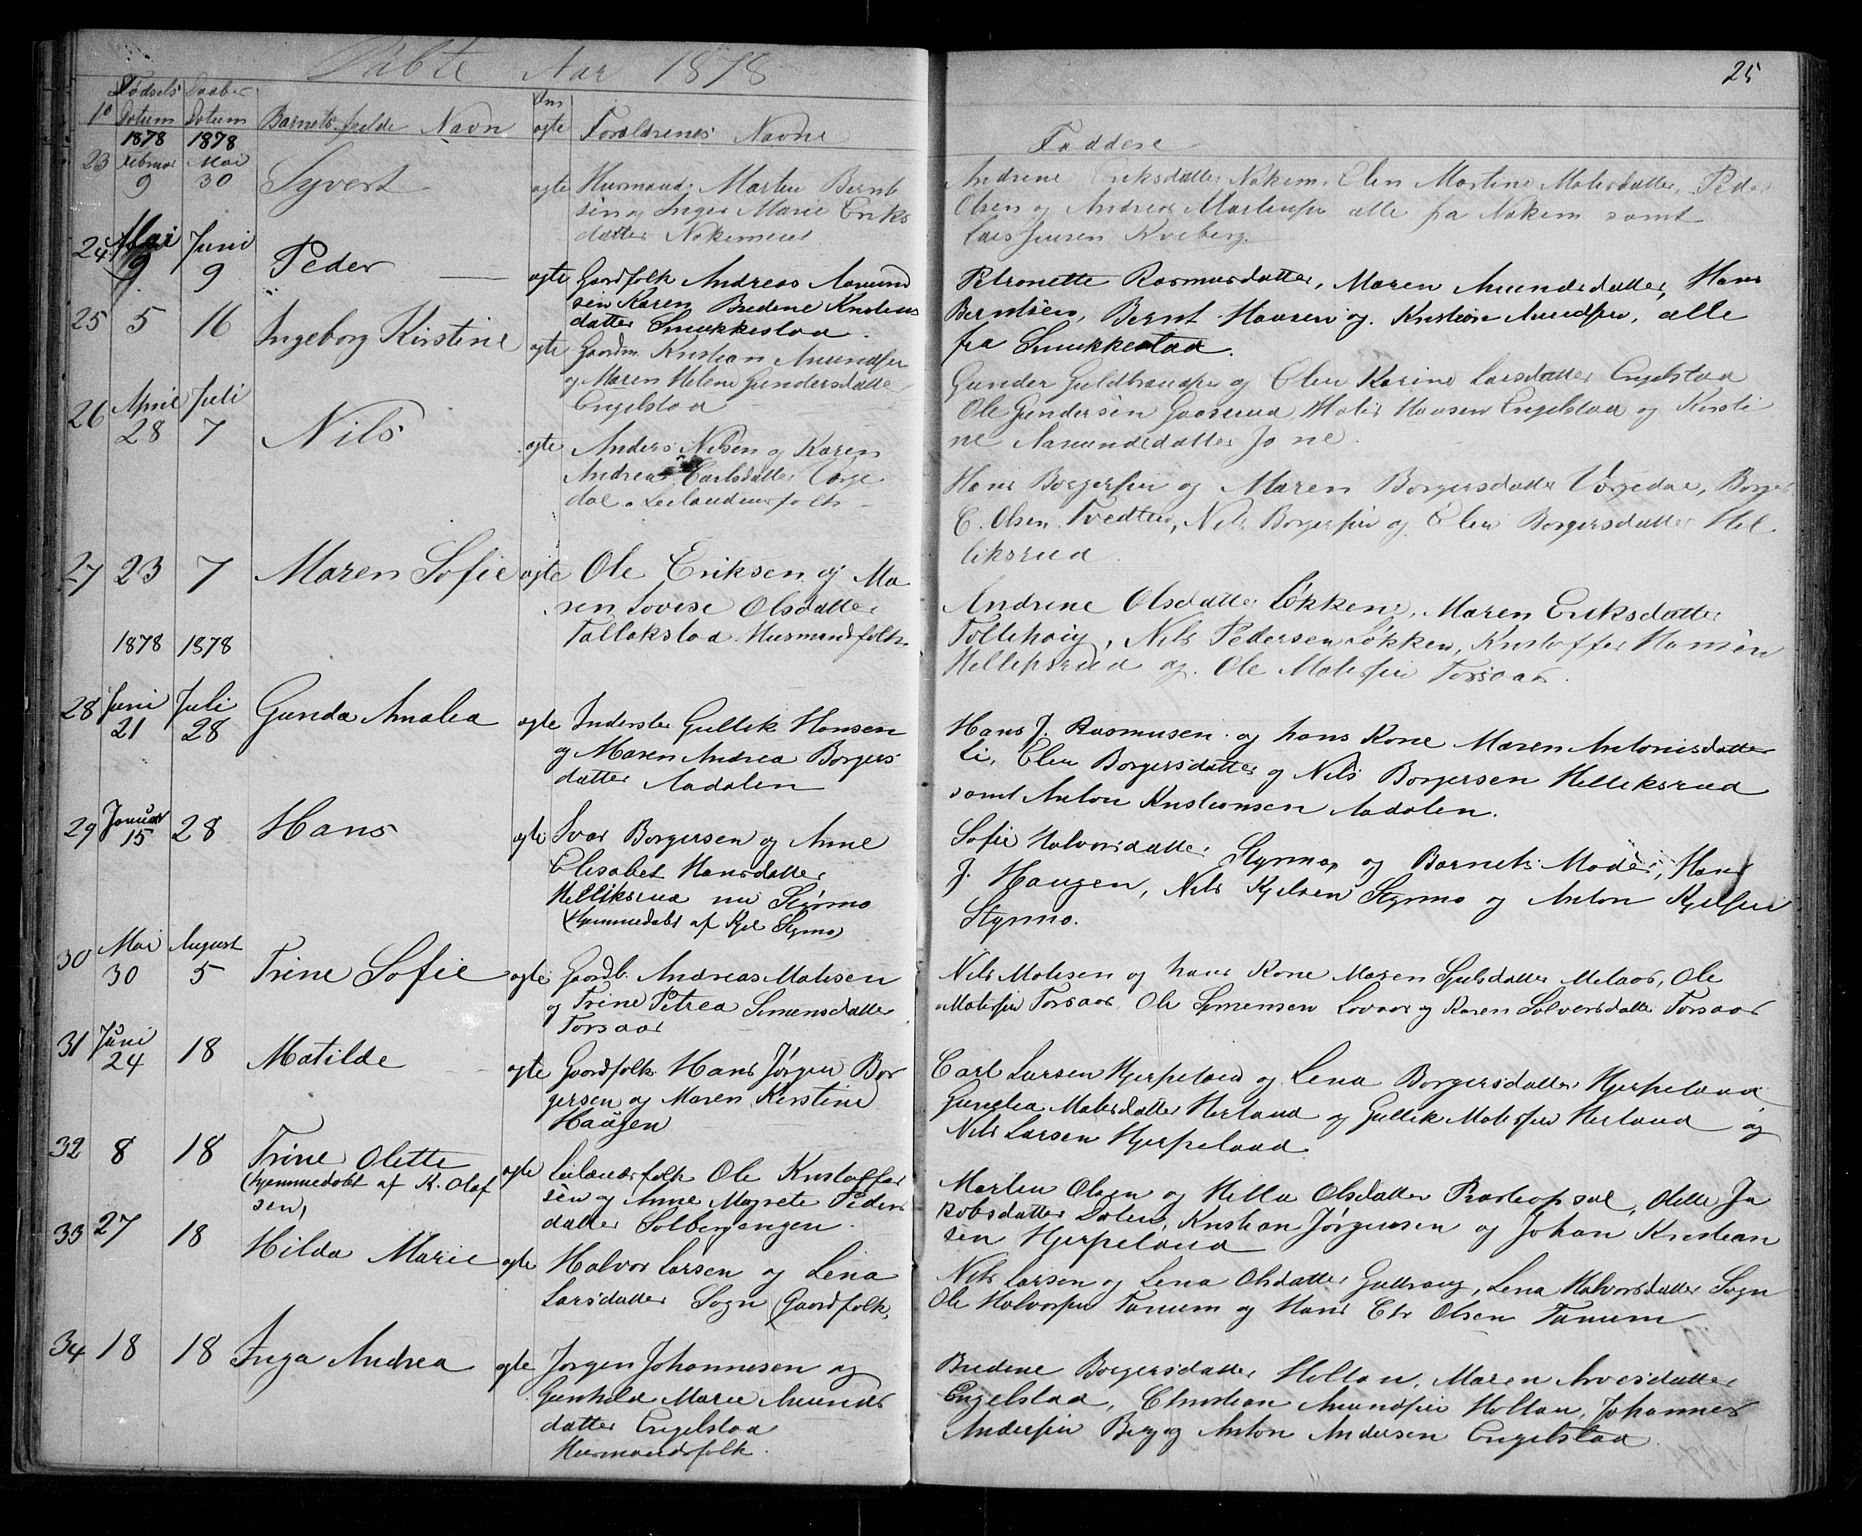 Døbte Aar 1878
25
No Fødsels Datum Daabs Datum Barnets fulde Navn Om ægte Forældrenes Navne Faddere
1878 1878
23 Februar 9 Mai 30 Syvert ægte Husmand Martin Bernt
sen og Inger Marie Eriks
datter Nokemeiet
Andrine Eriksdatter Nokem, Elen Martine Matisdatter, Peder
Olsen og Andreas Martinsen alle fra Nokem samt
Lars Jensen Kveberg.
24 Mai 9 Juni 9 Peder ægte Gaardfolk Andreas Aamund
sen Karen Bredene Kristians
datter Smukkestad.
Petronette Rasmusdatter, Maren Amundsdatter, Hans
Berntsen, Bernt Hansen og Kristian Amundsen, alle
fra Smukkestad.
25 5 16 Ingeborg Kirstine ægte Gaardm. Kristian Amundsen
og Maren Helene Gundersdatter
Engelstad
Gunder Guldbrandsen og Elen Karine Larsdatter Engelstad
Ole Gundersen Gaasrud, Matis Hansen Engelstad og Kirsti
ne Aamundsdatter Jone.
26 April 28 Juli 7 Nils ægte Anders Nilsen og Karen
Andrea Carlsdatter Vørge
dal. Leilændingsfolk
Hans Borgersen og Maren Borgersdatter Vørgedal, Borger
C. Olsen Tvedten, Nils Borgersen og Elen Borgersdatter Hel
liksrud
27 23 7 Maren Sofie ægte Ole Eriksen og Ma
ren Lovise Olsdatter
Tallakstad Husmandsfolk
Andrine Olsdatter Løkken, Maren Eriksdatter
Tollehaug, Nils Pedersen Løkken, Kristoffer Hansen
Helliksrud og Ole Matisen Torsaas.
1878 1878
28 Juni 21 Juli 28 Gunda Amalia ægte Inderste Gullik Hansen
og Maren Andrea Borgers
datter Aadalen
Hans J. Rasmusen og hans Kone Maren Antonisdatter
Li, Elen Borgersdatter og Nils Borgersen Helliksrud
samt Anton Kristiansen Aadalen.
29 Januar 15 28 Hans ægte Ivar Borgersen og Anne
Elisabet Hansdatter
Helliksrud nu Styrmo
(hjemmedøbt af Kjel Styrmo)
Sofie Halvorsdatter Styrmo, og Barnets Moder, Hans
J. Haugen, Nils Kjelsen Styrmo og Anton Kjelsen
Styrmo.
30 Mai 30 August 5 Trine Sofie ægte Gaardb. Andreas Matisen
og Trine Petrea Simensdatter
Torsaas
Nils Matisen og hans Kone Maren Sjulsdatter Melaas, Ole
Matisen Torsaas Ole Simensen Lovaas og Karen Solversdatter Torsaas
31 Juni 24 18 Matilde ægte Gaardfolk Hans Jørgen Bor
gersen og Maren Kirstine
Haugen
Carl Larsen Hjerpeland og Lena Borgersdatter Hjerpeland
Gunelia Matisdatter Herland og Gullik Matisen Herland og
Nils Larsen Hjerpeland.
32 8 18 Trine Olette
(hjemmedøbt af K. Olaf
sen)
ægte Leilændsfolk Ole Kristoffer
sen og Anne Magrete Peders
datter Solbergengen.
Martin Olsen og Hella Olsdatter Præstopsal, Olette Ja
kobsdatter Dalen, Kristian Jørgensen og Johan Kristian
sen Hjerpeland
33 27 18 Hilda Marie ægte Halvor Larsen og Lena
Larsdatter Sogn (Gaardfolk)
Nils Larsen og Lena Olsdatter Gullhaug, Lena Halvorsdatter Sogn
Ole Halvorsen Tanum og Hans Chr Olsen Tanum
34 18 18 Inga Andrea ægte Jørgen Johannesen og
Gunhild Marie Amunds
datter Engelstad
Husmandsfolk.
Bredene Borgersdatter Holtan, Maren Arvesdatter
Engelstad, Christian Amundsen Holtan, Johannes
Andersen Berg og Anton Andersen Engelstad.